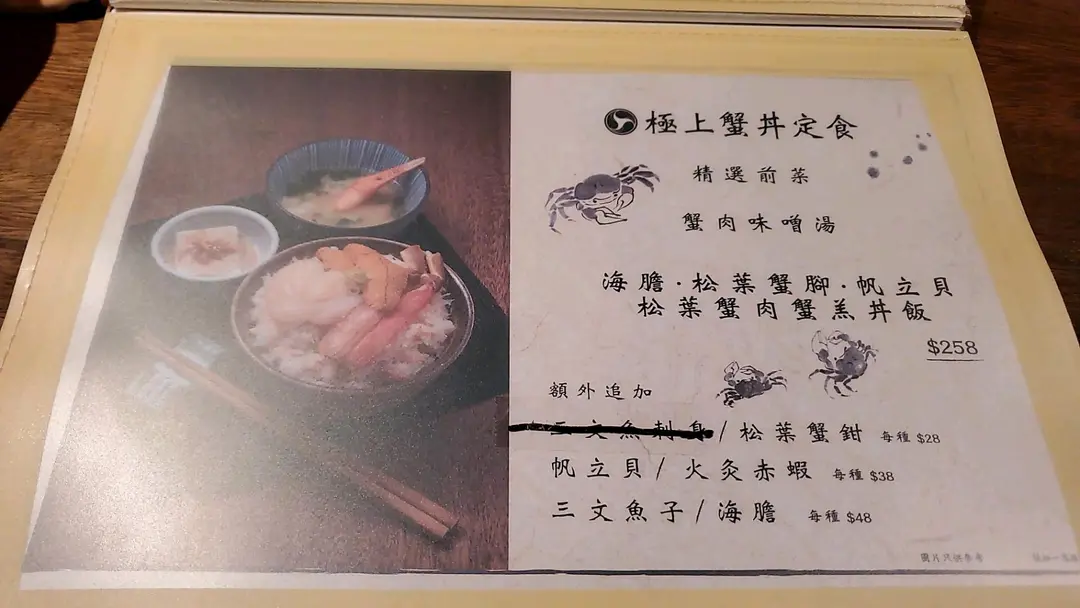 極上蟹丼定食
精選前菜
蟹肉味噌湯
海膽·松葉蟹腳·帆立貝
松葉蟹肉蟹羔丼飯
$258
額外追加
三文魚刺身/松葉蟹鉗 每種 $28
帆立貝/火灸赤蝦 每種 $38
三文魚子/海膽 每種 $48
圖片只供參考